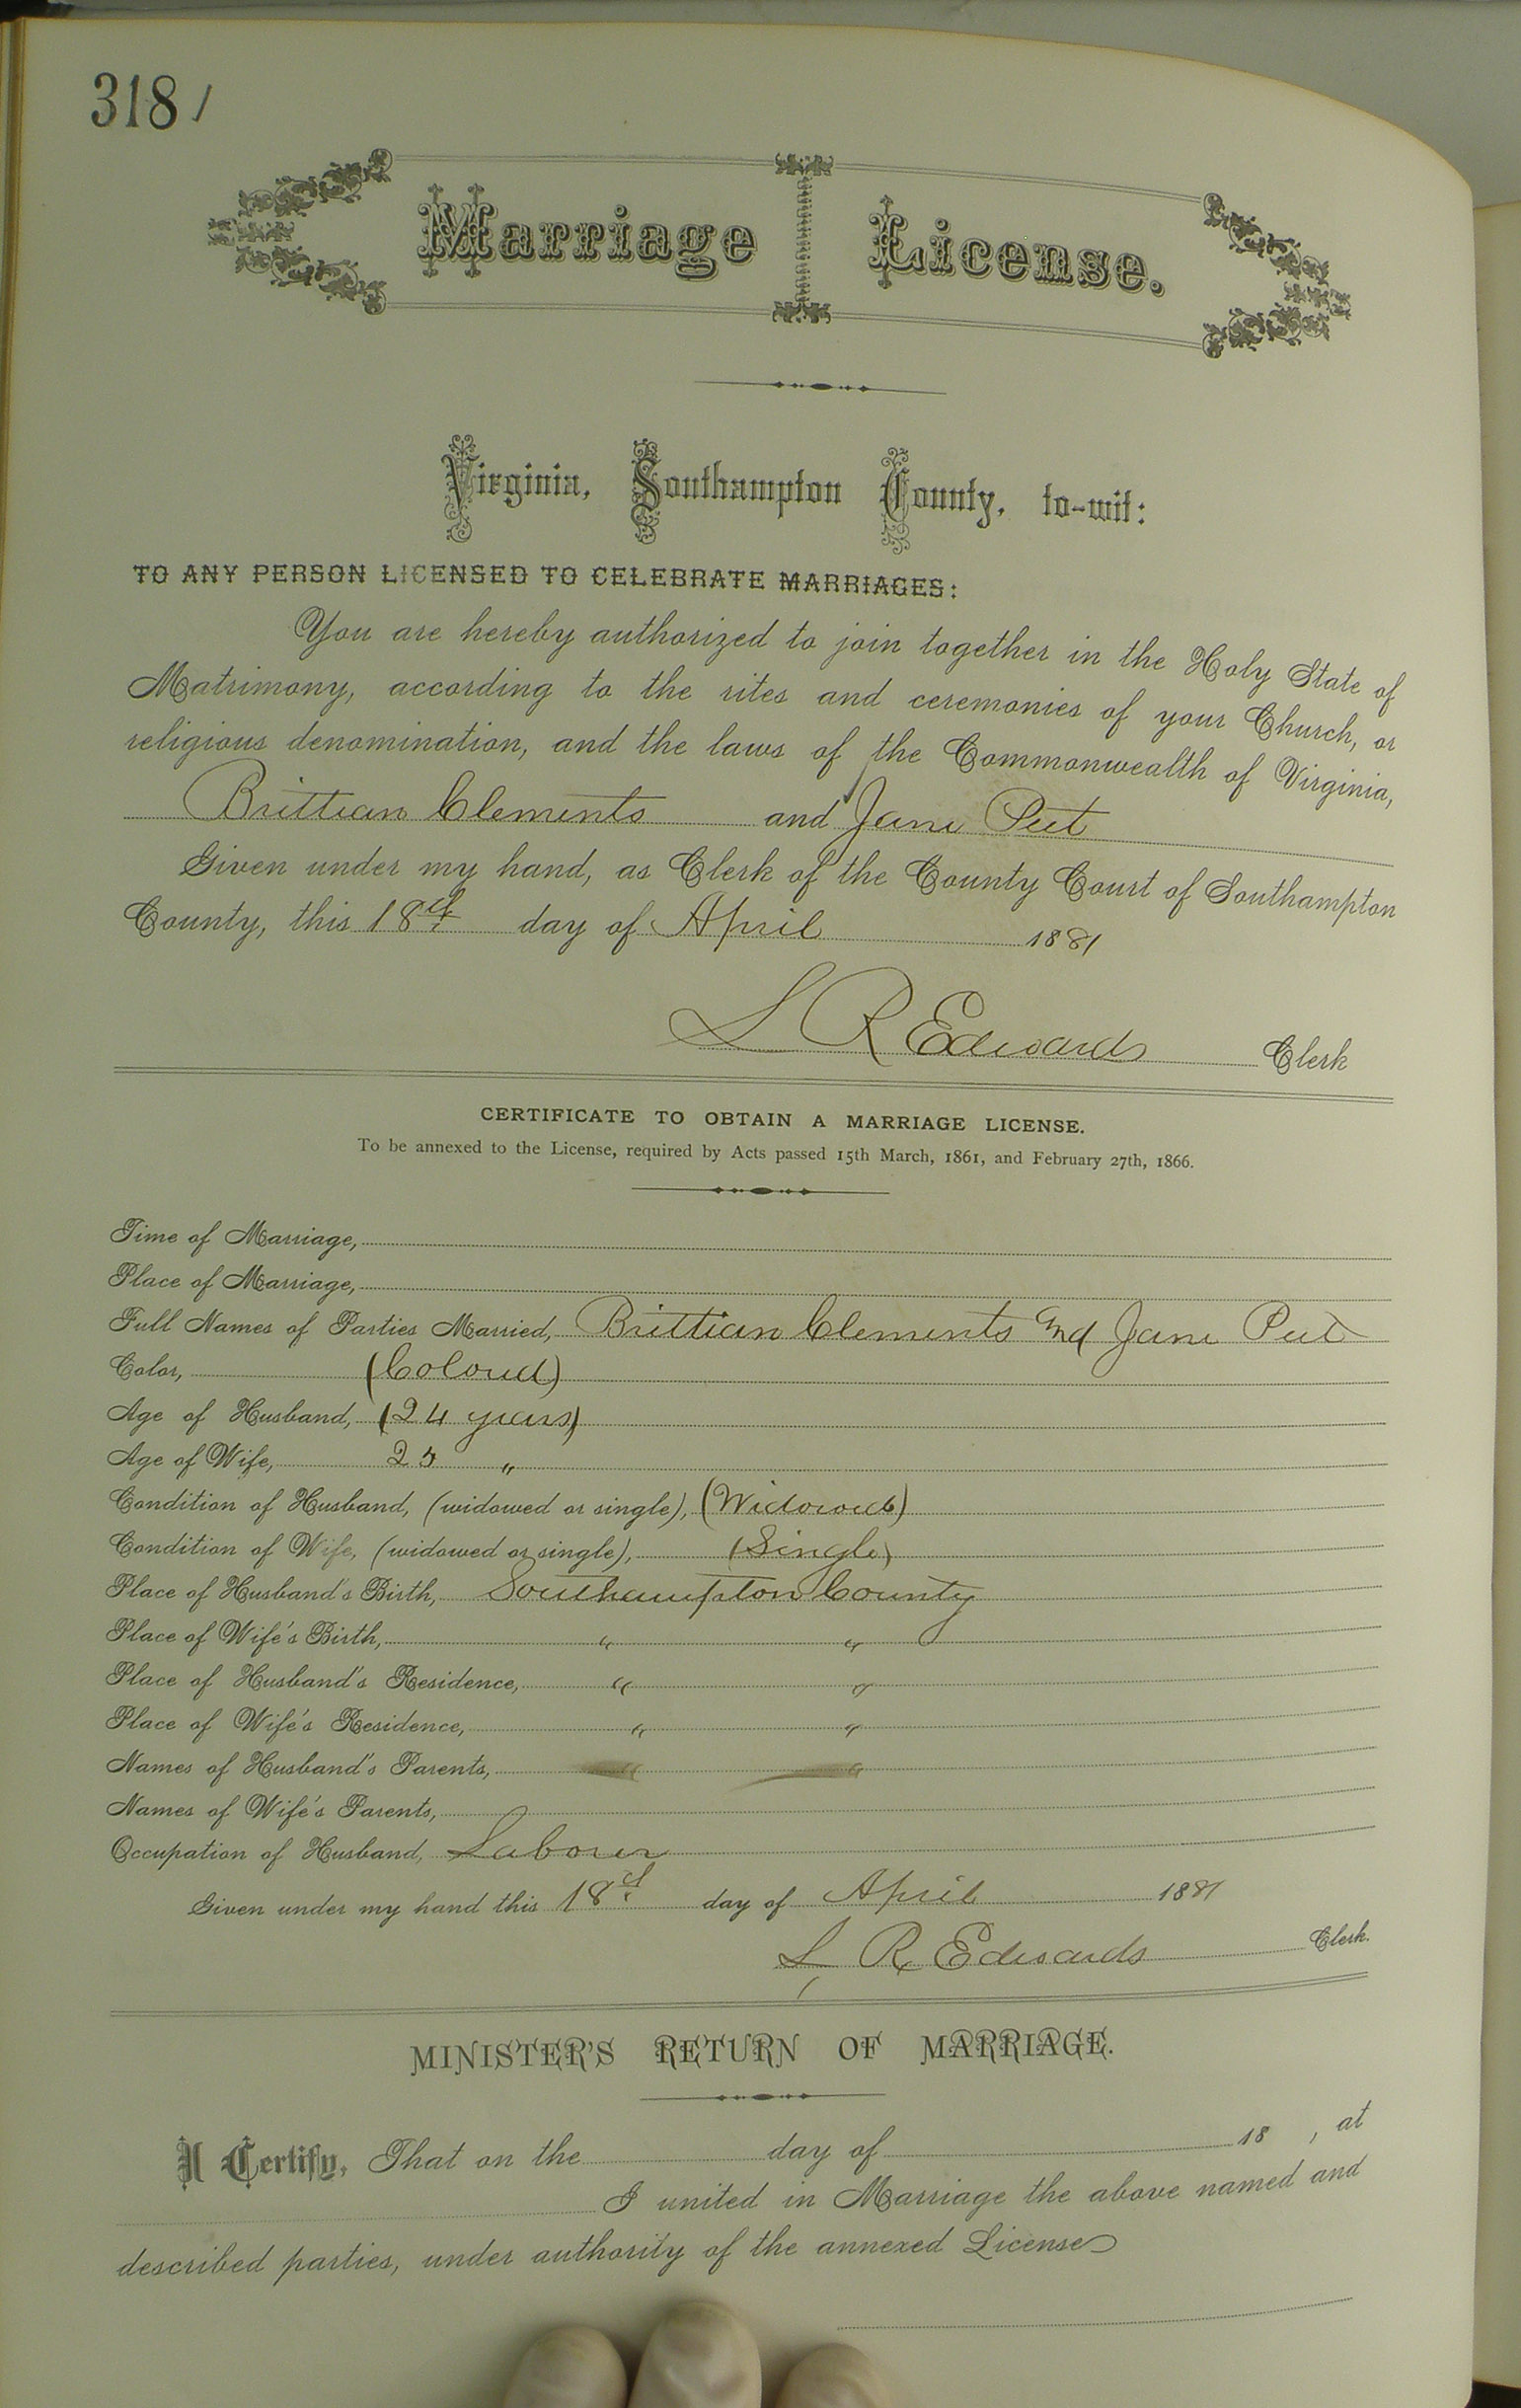 318 /
Marriage License.
Virginia, Southampton County, to-wit:
TO ANY PERSON LICENSED TO CELEBRATE MARRIAGES:
You are hereby authorized to join together in the Holy State of
Matrimony, according to the rites and ceremonies of your Church, or
religious denomination, and the laws of the Commonwealth of Virginia,
Brittian Clements and Jane
Given under my hand, as Clerk of the County Court of Southampton
County, this 18th day of April 1881
L R Edwards Clerk
CERTIFICATE TO OBTAIN A MARRIAGE LICENSE.
To be annexed to the License, required by Acts passed 15th March, 1861, and February 27th, 1866.
Time of Marriage,
Place of Marriage,
Full Names of Parties Married, Brittian Clements and Jane
Color, (Colored)
Age of Husband, (24 years)
Age of Wife, 25 "
Condition of Husband, (widowed or single), (Widowed)
Condition of Wife, (widowed or single), (Single)
Place of Husband's Birth, Southampton County
Place of Wife's Birth, " "
Place of Husband's Residence, " "
Place of Wife's Residence, " "
Names of Husband's Parents, " "
Names of Wife's Parents,
Occupation of Husband, Laborer
Given under my hand this 18th day of April 1881
L R Edwards Clerk.
MINISTER'S RETURN OF MARRIAGE.
I Certify, That on the day of 18 , at
I united in Marriage the above named and
described parties, under authority of the annexed License